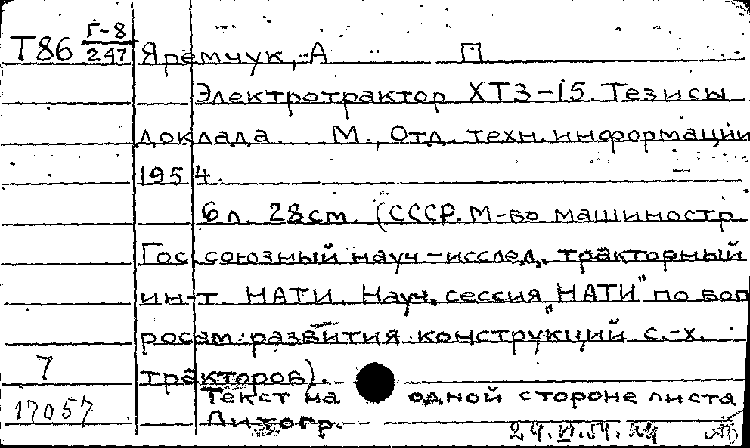 Т86 Г-8/247 Яремчук, А П
Электротрактор ХТЗ-15. Тезисы
доклада. М., Отд. техн. информации
1954.
6 л. 28 см. (СССР. М-во машиностр
Гос. союзный науч-исслед. тракторный
ин-т НАТИ. Науч. сессия "НАТИ" по воп
росам развития конструкций с.-х.
7 тракторов).
Текст на одной стороне листа
17057 Литогр.
24.VI.54.